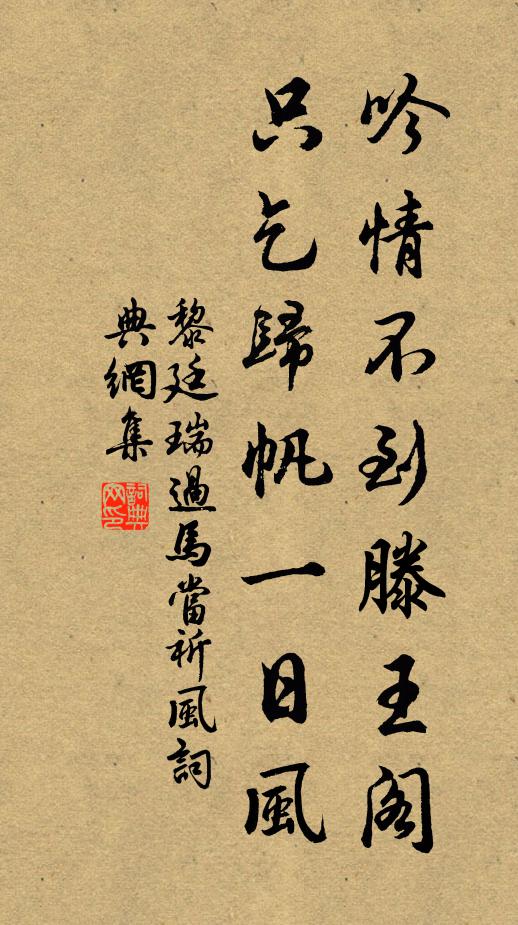 吟情不到滕王阁
只乞歸帆一日風
黎廷瑞過馬當祈風詞
典網集
詞典网印